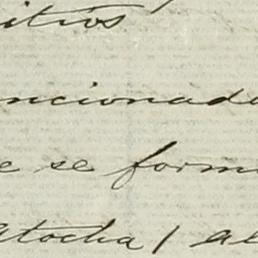 itios
ncionade
e se form
Atocha / al